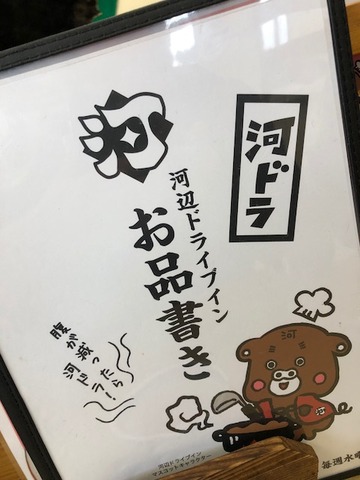 河ドラ
河
河辺ドライブイン
お品書き
腹が減ったら
河ドラー!
河
河辺ドライブイン
マスコットキャラクター
毎週水曜